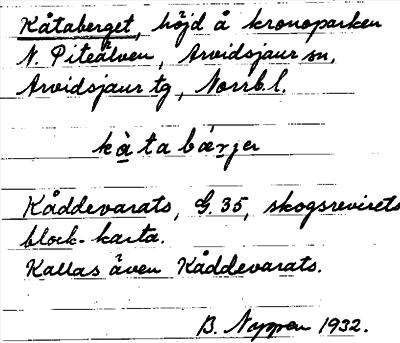 Kåtaberget, höjd å kronoparken
N. Piteälven, Arvidsjaur sn,
Arvidsjaur tg, Norrb. l.
kàta bǽrjer
Kåddevarats, G. 35, skogsrevirets
block-karta.
Kallas även Kåddevarats.
B. Nyppen 1932.